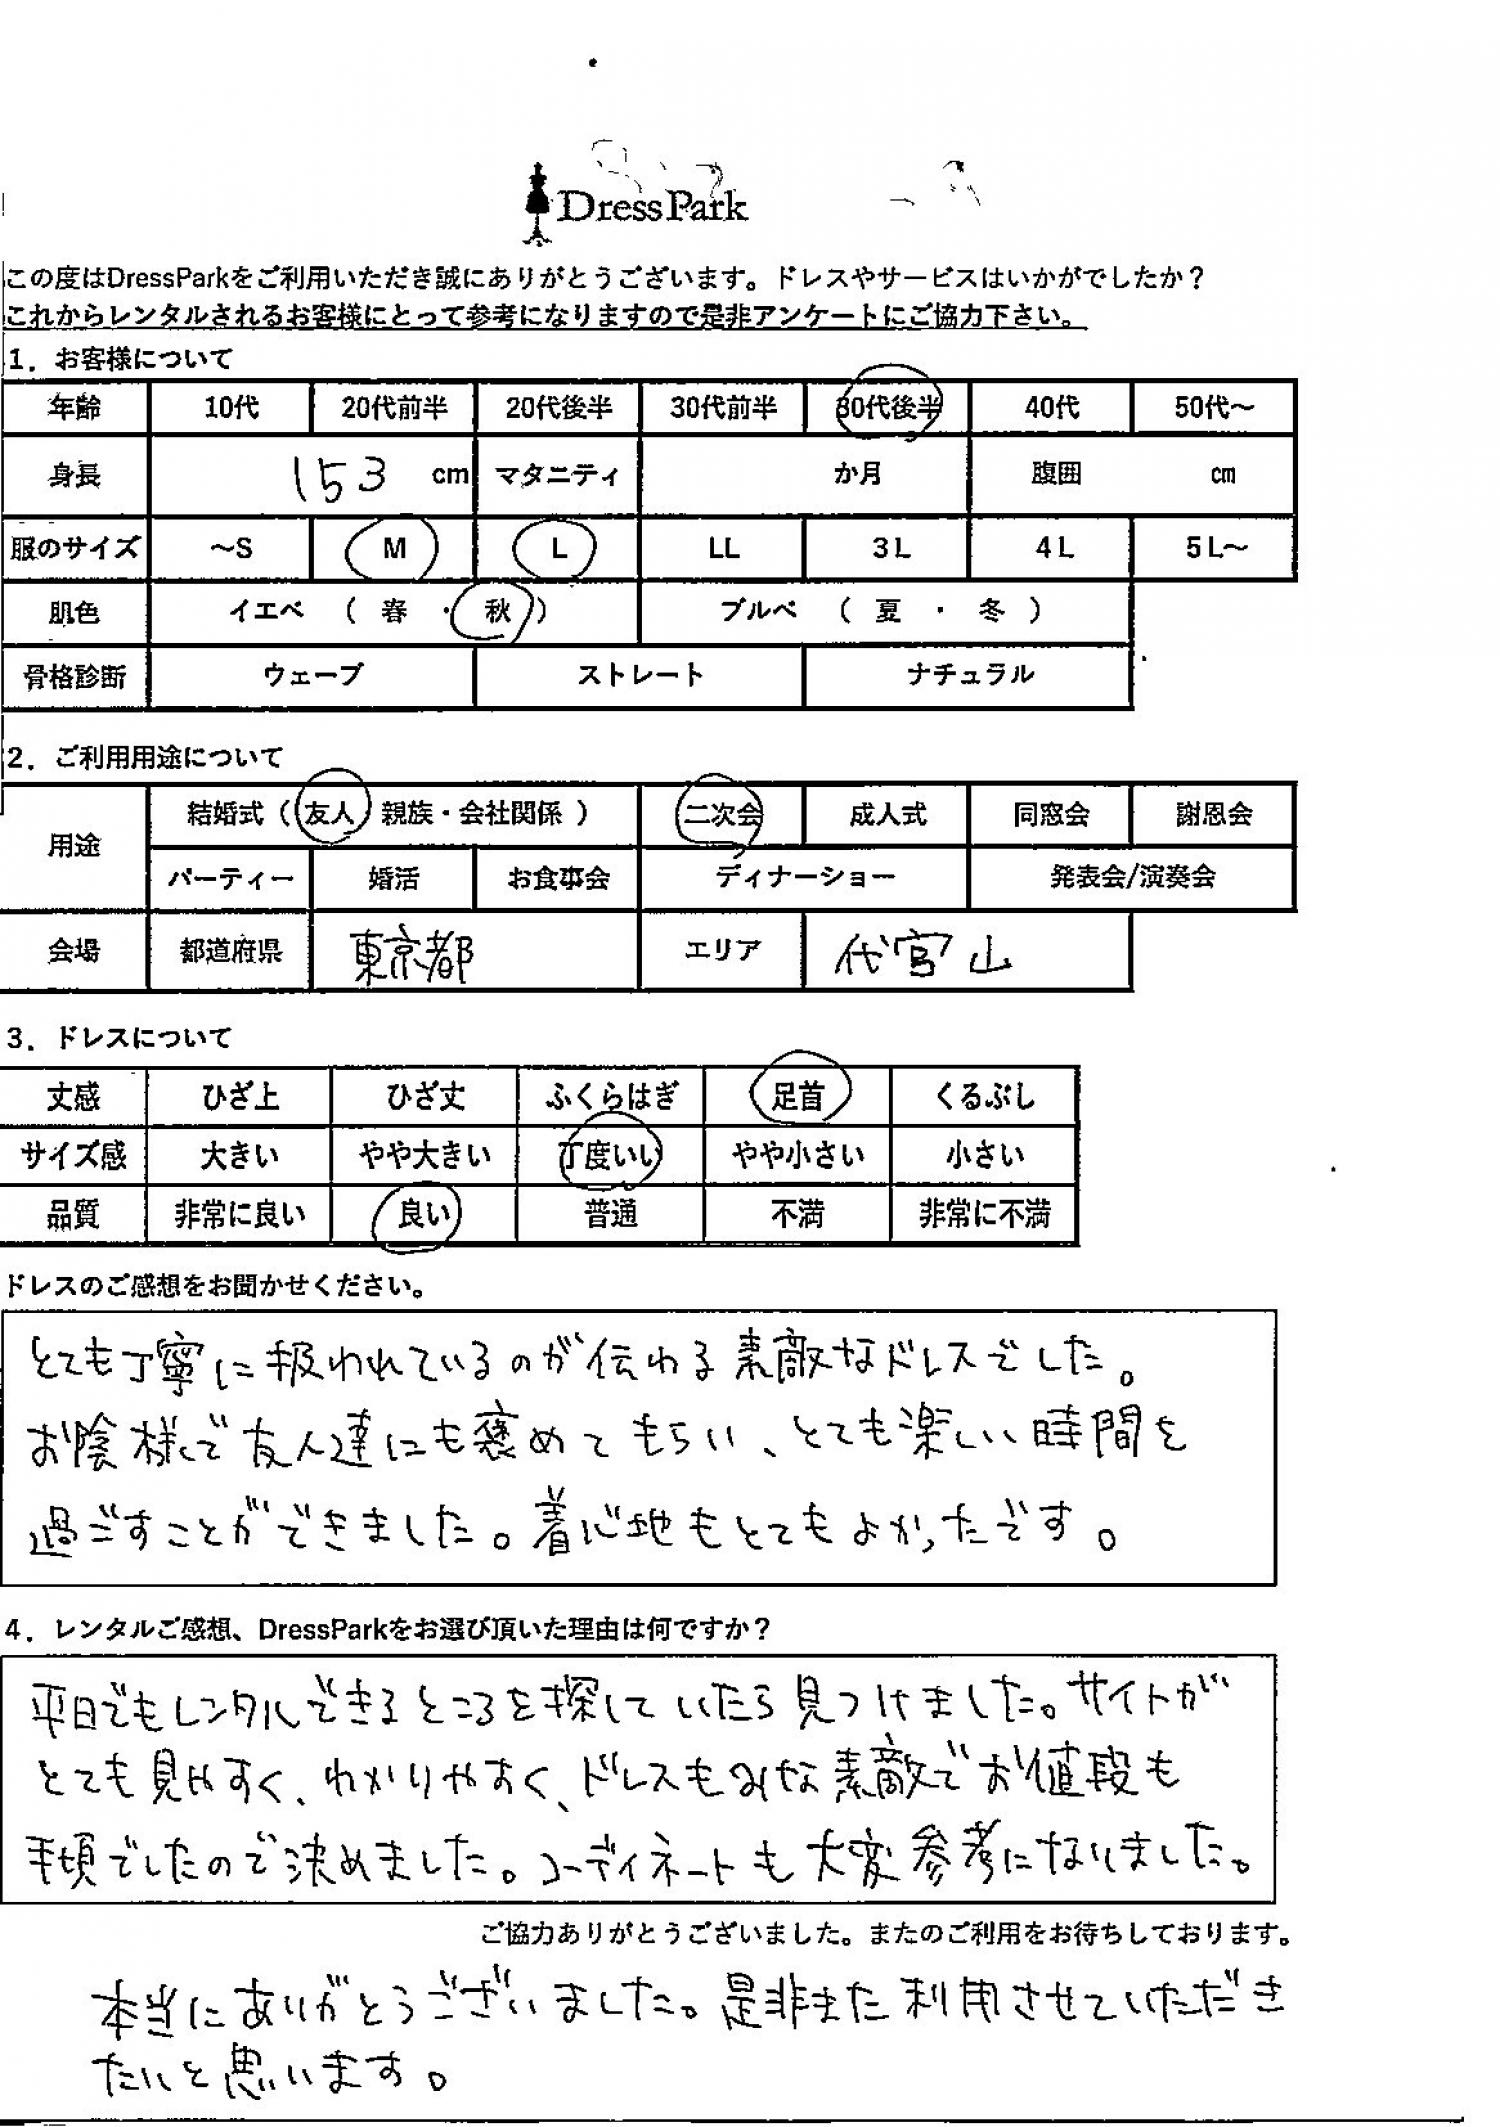 DressPark
この度はDressParkをご利用いただき誠にありがとうございます。ドレスやサービスはいかがでしたか？
これからレンタルされるお客様にとって参考になりますので是非アンケートにご協力下さい。
1．お客様について
年齢 10代 20代前半 20代後半 30代前半 30代後半 40代 50代～
身長 153 cm マタニティ か月 腹囲 cm
服のサイズ ～S M L LL 3L 4L 5L～
肌色 イエベ （ 春 ・ 秋 ） ブルベ （ 夏 ・ 冬 ）
骨格診断 ウェーブ ストレート ナチュラル
2．ご利用用途について
用途 結婚式（ 友人 親族・会社関係 ） 二次会 成人式 同窓会 謝恩会
パーティー 婚活 お食事会 ディナーショー 発表会/演奏会
会場 都道府県 東京都 エリア 代官山
3．ドレスについて
丈感 ひざ上 ひざ丈 ふくらはぎ 足首 くるぶし
サイズ感 大きい やや大きい 丁度いい やや小さい 小さい
品質 非常に良い 良い 普通 不満 非常に不満
ドレスのご感想をお聞かせください。
とても丁寧に扱われているのが伝わる素敵なドレスでした。
お陰様で友人達にも褒めてもらい、とても楽しい時間を
過ごすことができました。着心地もとてもよかったです。
4．レンタルご感想、DressParkをお選び頂いた理由は何ですか？
平日でもレンタルできるところを探していたら見つけました。サイトが
とても見やすく、わかりやすく、ドレスもみな素敵でお値段も
手頃でしたので決めました。コーディネートも大変参考になりました。
ご協力ありがとうございました。またのご利用をお待ちしております。
本当にありがとうございました。是非また利用させていただき
たいと思います。